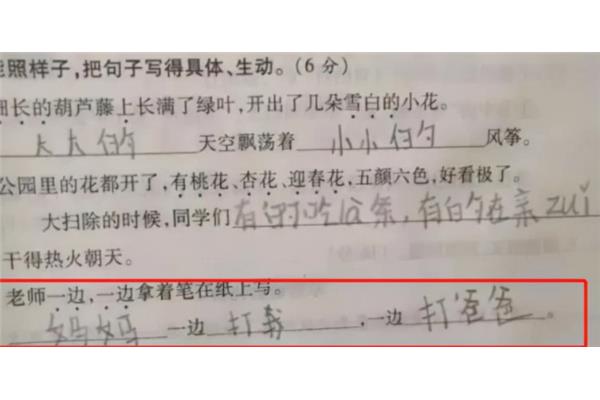 照样子,把句子写得具体、生动。(6 分)
细长的葫芦藤上长满了绿叶,开出了几朵雪白的小花。
大大的 天空飘荡着 小小的 风筝。
公园里的花都开了,有桃花、杏花、迎春花,五颜六色,好看极了。
大扫除的时候,同学们有的吃条,有的在亲zuǐ
干得热火朝天。
老师一边,一边拿着笔在纸上写。
妈妈 一边 打我 ,一边 打爸爸 。